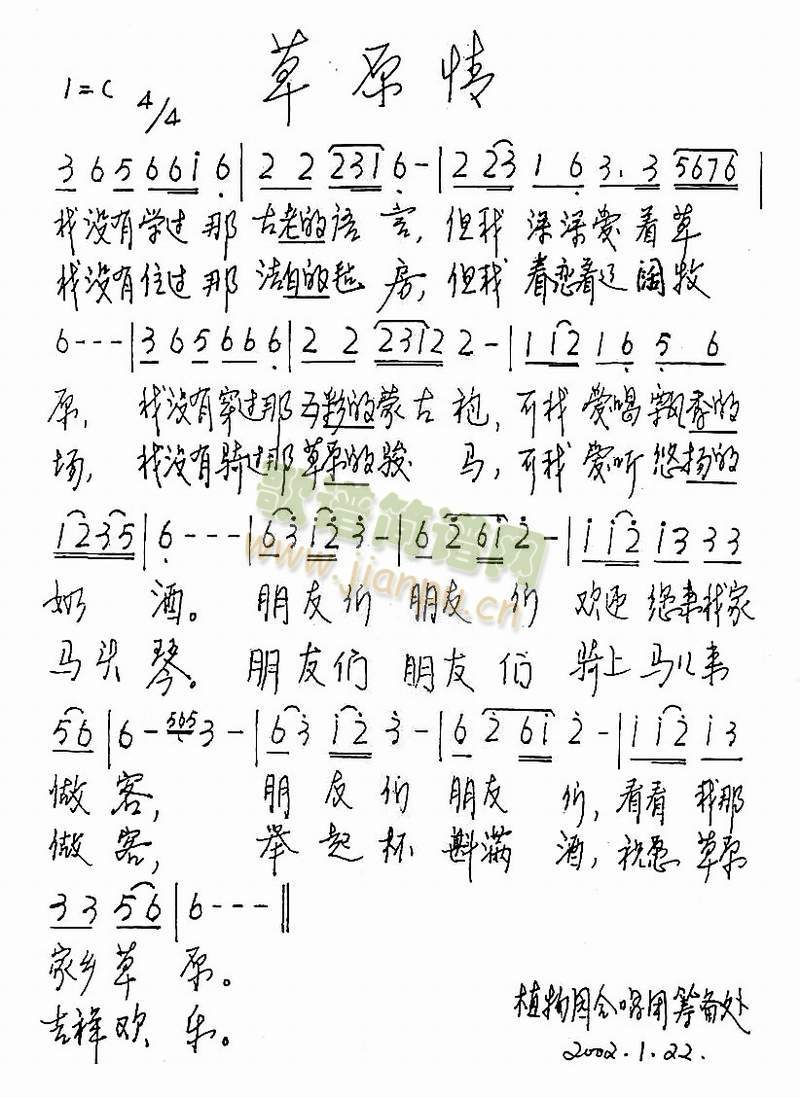 草原情
1=C 4/4
3 6 5 6 6 i 6 | 2 2 2 3 1 6 - | 2 2 3 1 6 3. 3 5 6 7 6 |
我没有学过那古老的语言,但我深深爱着草
我没有住过那洁白的毡房,但我眷恋着辽阔牧
6 - - - | 3 6 5 6 6 6 | 2 2 2 3 1 2 2 - | 1 1 2 1 6 5 6
原, 我没有穿过那五彩的蒙古袍,可我爱喝飘香的
场, 我没有骑过那草原的骏马,可我爱听悠扬的
1 2 3 5 | 6 - - - | 6 3 i 2 3 - | 6 2 6 i 2 - | i i 2 i 3 3 3
奶酒。朋友们朋友们欢迎您来我家
马头琴。朋友们朋友们骑上马儿来
5 6 | 6 - 5 6 5 3 - | 6 3 i 2 3 - | 6 2 6 i 2 - | i i 2 i 3
做客, 朋友们朋友们,看看我那
做客, 举起杯斟满酒,祝愿草原
3 3 5 6 | 6 - - - ||
家乡草原。
吉祥欢乐。
植物园合唱团筹备处
2002.1.22.
歌谱简谱网
www.jianpu.cn